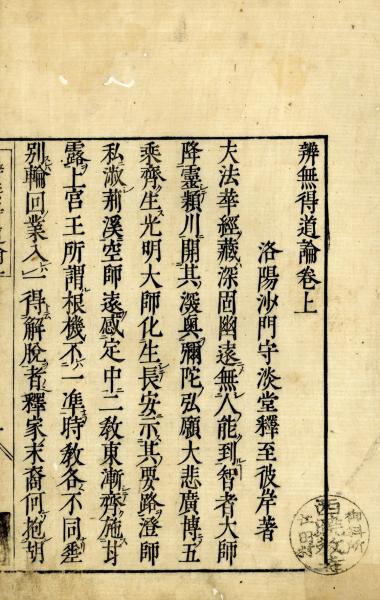 辨無得道論卷上
洛陽沙門守淡堂釋至彼岸著
夫法華經藏深固幽遠無人能到智者大師
降靈穎川開其深奥彌陀弘願大悲廣博五
乘齊生光明大師化生長安示其要路澄師
私淑荊溪空師遠感定中二教東漸齊施甘
露上宮王所謂根機不一準時教各不同埀
別輪回業入一得解脫者釋家末裔何抱胡